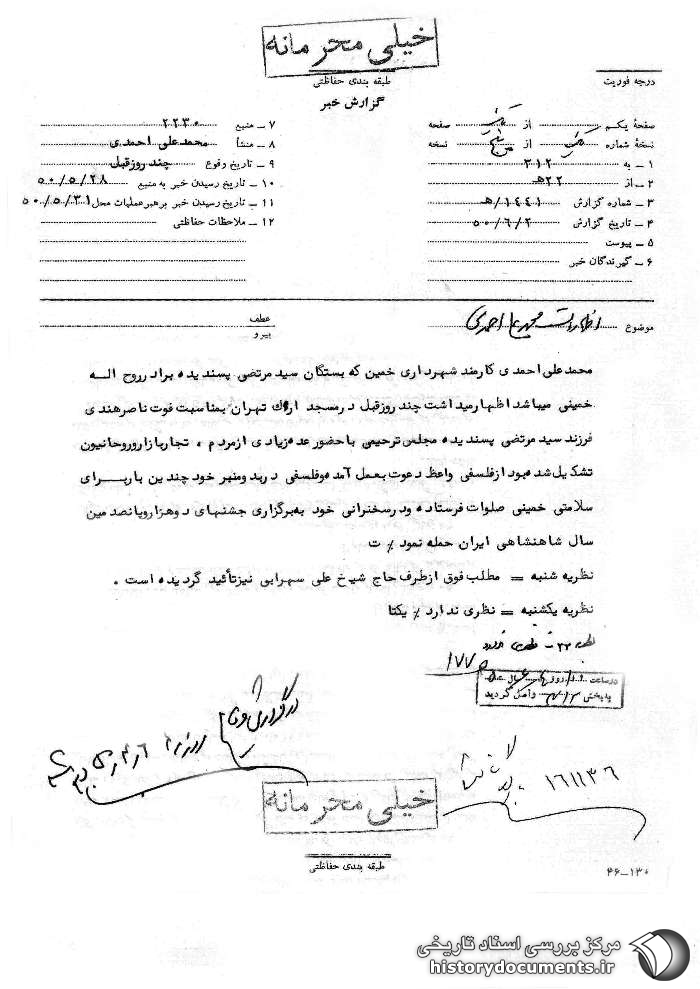 خیلی محرمانه
طبقه بندی حفاظتی
درجه فوریت
گزارش خبر
صفحهٔ یکم از صفحه
نسخهٔ شماره از نسخه
۱ ـ به ۳۱۲
۲ ـ از ۲۲هـ
۳ ـ شماره گزارش ۱۴۴۱/هـ
۴ ـ تاریخ گزارش ۵۰/۶/۲
۵ ـ پیوست
۶ ـ گیرندگان خبر
۷ ـ منبع ۲۲۳۰
۸ ـ منشأ محمدعلی احمدی
۹ ـ تاریخ وقوع چند روز قبل
۱۰ ـ تاریخ رسیدن خبر به منبع ۵۰/۵/۲۸
۱۱ ـ تاریخ رسیدن خبر برهبر عملیات محل ۵۰/۵/۳۱
۱۲ ـ ملاحظات حفاظتی
موضوع اظهارات محمدعلی احمدی
عطف
پیرو
محمدعلی احمدی کارمند شهرداری خمین که بستگان سید مرتضی پسندیده برادر روح اله
خمینی میباشد اظهار میداشت چند روز قبل در مسجد ارک تهران بمناسبت فوت ناصر هندی
فرزند سید مرتضی پسندیده مجلس ترحیمی با حضور عده زیادی از مردم ، تجار بازار و روحانیون
تشکیل شده بود از فلسفی واعظ دعوت بعمل آمده و فلسفی در بدو منبر خود چندین بار برای
سلامتی خمینی صلوات فرستاده و در سخنرانی خود به برگزاری جشنهای دو هزار و پانصدمین
سال شاهنشاهی ایران حمله نمود٪ ت
نظریه شنبه = مطلب فوق از طرف حاج شیخ علی سهرابی نیز تأئید گردیده است .
نظریه یکشنبه = نظری ندارد٪ یکتا
۱۷۷۵
در ساعت روز
بخش ۳۱۲ واصل گردید
در گزارش
۱۶۱۱۳۶
خیلی محرمانه
طبقه بندی حفاظتی
۴۶-۱۳۰
مرکز بررسی اسناد تاریخی
historydocuments.ir